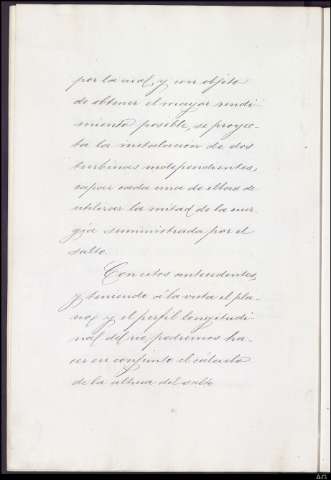 por la cual, y con objeto
de obtener el mayor rendi-
miento posible, se proyec-
ta la instalación de dos
turbinas independientes,
capaz cada una de ellas de
utilizar la mitad de la ener-
gía suministrada por el
salto.
Con estos antecedentes,
y teniendo á la vista el pla-
no y el perfil longitudi-
nal del río, podremos ha-
cer en conjunto el cálculo
de la altura del salto